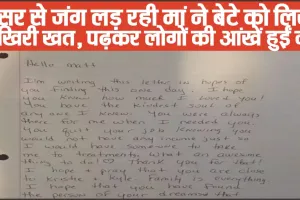 सर से जंग लड़ रही मां ने बेटे को लि
खिरी खत, पढ़कर लोगों की आंखें हुई
Hello Matt
I'm writing this letter in hopes of
you finding this one day. I hope
you know how much I love you!
You have the kindest soul of
anyone I know. You were always
there for me when I needed you.
You quit your job knowing you
would not have any income just so
I would have someone to take
me to treatments. What an awesome
thing to do! Thank you for that!
I hope & pray that you are close
to & Kyle. Family is everything
I hope that you have found
the person of your dreams that